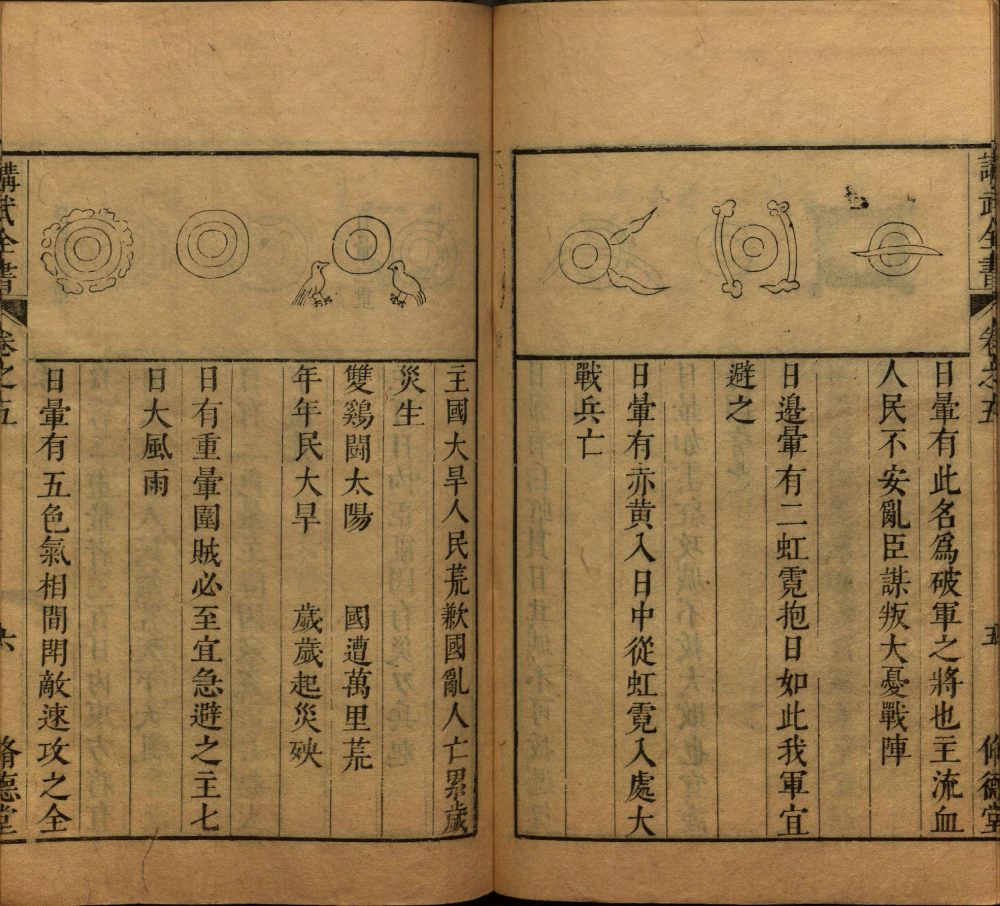 講武全書
卷之五
五
脩德堂
日暈有此名爲破軍之將也主流血
人民不安亂臣謀叛大憂戰陣
日邉暈有二虹霓抱日如此我軍宜
避之
日暈有赤黄入日中從虹霓入處大
戰兵亡
主國大旱人民荒歉國亂人亡累歲
災生
雙鷄鬪太陽　國遭萬里荒
年年民大旱　歲歲起災殃
日有重暈圍賊必至宜急避之主七
日大風雨
日暈有五色氣相間開敵速攻之全
講武全書
卷之五
六
脩德堂